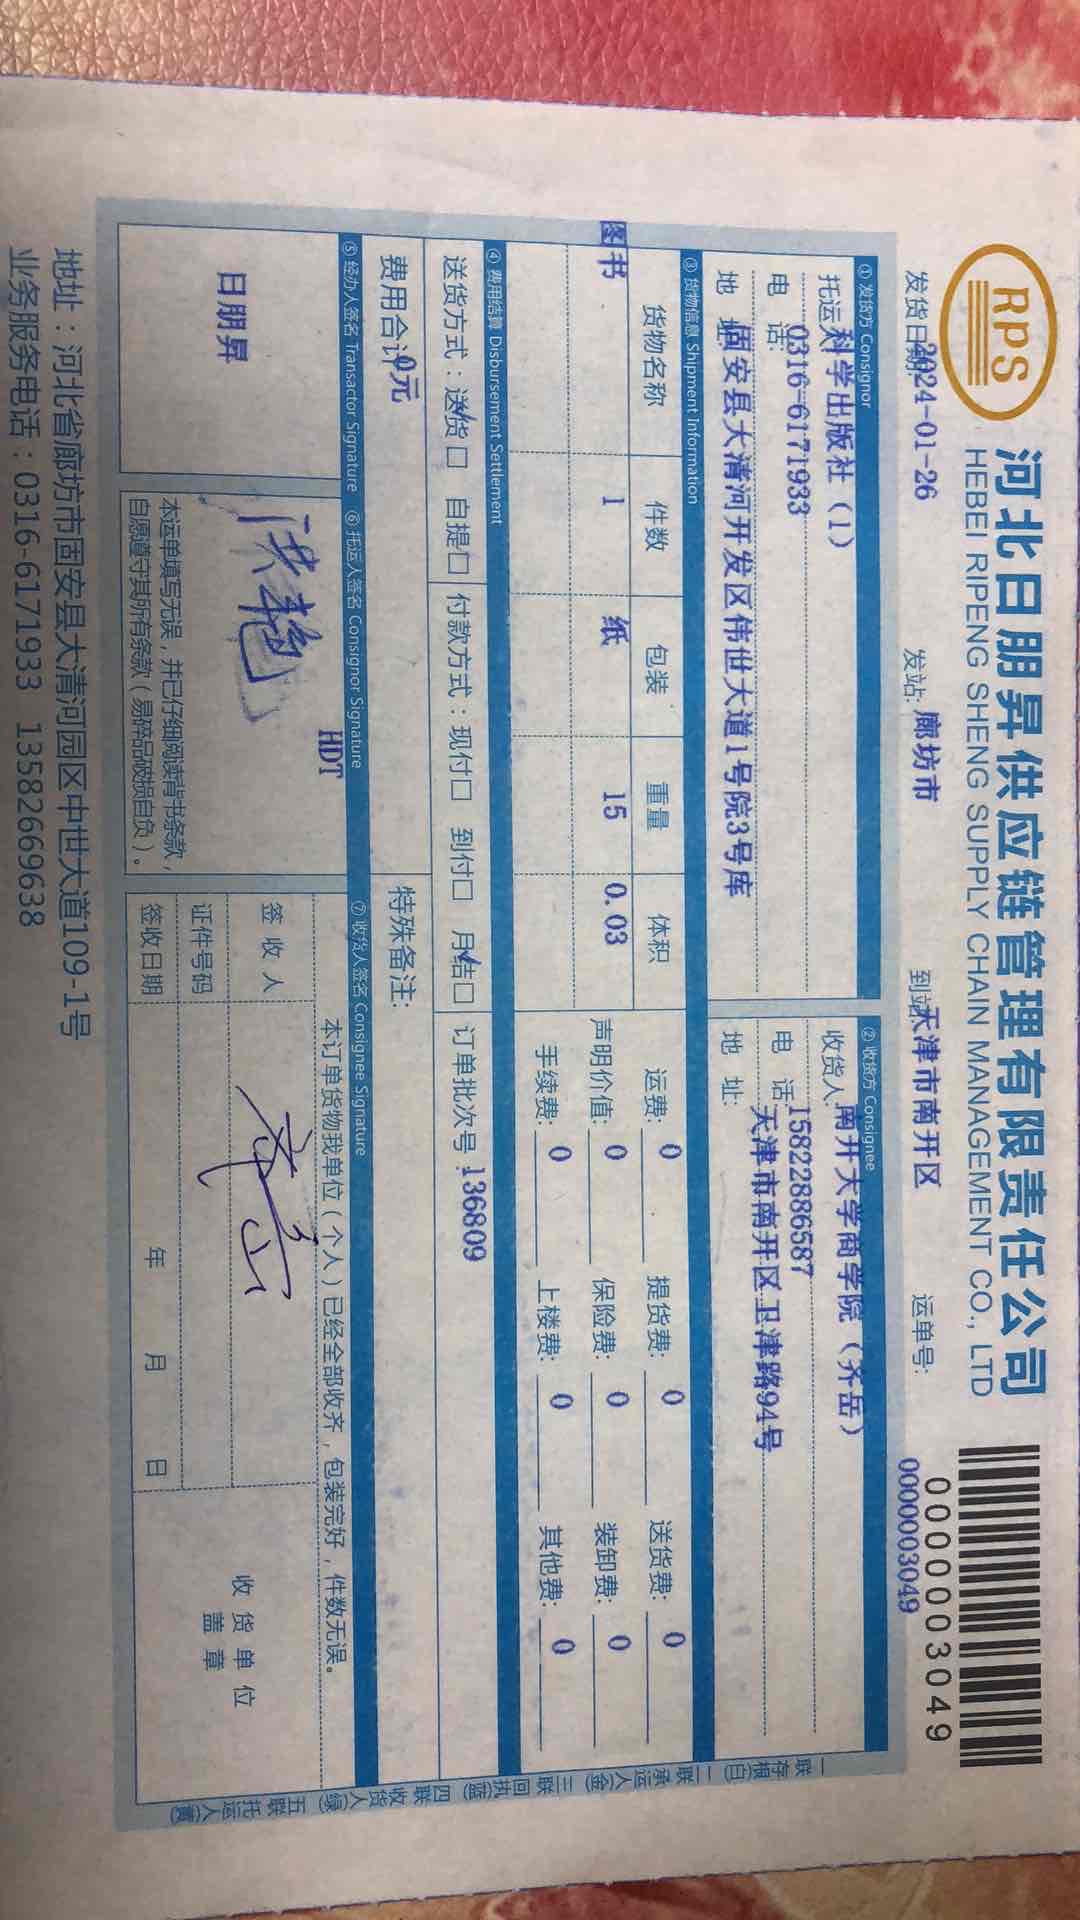 RPS
河北日朋昇供应链管理有限责任公司
HEBEI RIPENG SHENG SUPPLY CHAIN MANAGEMENT CO., LTD
0000003049
发货日期: 2024-01-26 发站: 廊坊市 到站: 天津市南开区 运单号: 0000003049
① 发货方 Consignor
托运人: 科学出版社（1）
电 话: 0316-6171933
地 址: 固安县大清河开发区伟世大道1号院3号库
② 收货方 Consignee
收货人: 南开大学商学院（齐岳）
电 话: 15822886587
地 址: 天津市南开区卫津路94号
③ 货物信息 Shipment Information
货物名称 件数 包装 重量 体积
图书 1 纸 15 0.03
运费: 0 提货费: 0 送货费: 0
声明价值: 0 保险费: 0 装卸费: 0
手续费: 0 上楼费: 0 其他费: 0
④ 费用结算 Disbursement Settlement
送货方式：送货√□ 自提□ 付款方式：现付□ 到付□ 月结√□ 订单批次号: 136809
费用合计: 0元
特殊备注:
⑤ 经办人签名 Transactor Signature
日朋昇
⑥ 托运人签名 Consignor Signature
HDT
本运单填写无误，并已仔细阅读背书条款，
自愿遵守其所有条款（易碎品破损自负）。
⑦ 收货人签名 Consignee Signature
本订单货物我单位（个人）已经全部收齐，包装完好，件数无误。
签 收 人
证件号码
签收日期 年 月 日
收 货 单 位
盖 章
一联存根(白) 二联承运人(金) 三联回执(蓝) 四联收货人(绿) 五联托运人(黄)
地址：河北省廊坊市固安县大清河园区中世大道109-1号
业务服务电话：0316-6171933 13582669638